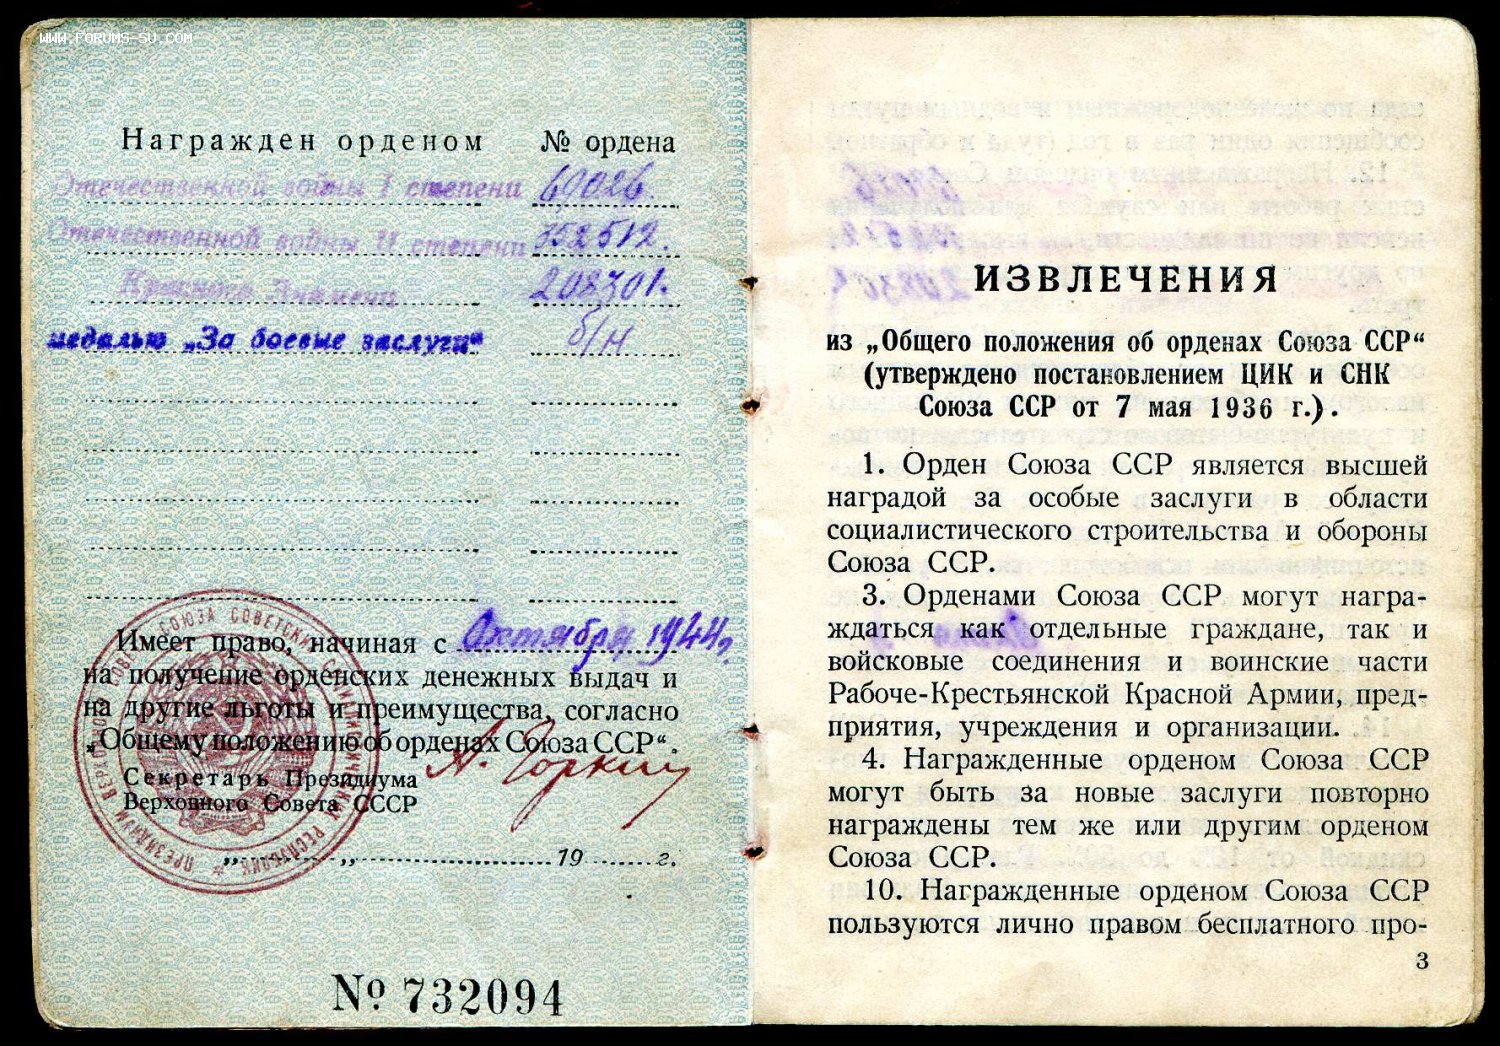 WWW.FORUMS-SU.COM
Награжден орденом № ордена
Отечественной войны I степени 69026.
Отечественной войны II степени 352512.
Красного Знамени 208301.
медалью „За боевые заслуги“ б/н
Имеет право, начиная с Октября 1944г.
на получение орденских денежных выдач и
на другие льготы и преимущества, согласно
„Общему положению об орденах Союза ССР“.
Секретарь Президиума
Верховного Совета СССР
А. Горкин
„ „ 19 г.
ПРЕЗИДИУМ ВЕРХОВНОГО СОВЕТА СОЮЗА СОВЕТСКИХ СОЦИАЛИСТИЧЕСКИХ РЕСПУБЛИК
№ 732094
ИЗВЛЕЧЕНИЯ
из „Общего положения об орденах Союза ССР“
(утверждено постановлением ЦИК и СНК
Союза ССР от 7 мая 1936 г.).
1. Орден Союза ССР является высшей
наградой за особые заслуги в области
социалистического строительства и обороны
Союза ССР.
3. Орденами Союза ССР могут награ-
ждаться как отдельные граждане, так и
войсковые соединения и воинские части
Рабоче-Крестьянской Красной Армии, пред-
приятия, учреждения и организации.
4. Награжденные орденом Союза ССР
могут быть за новые заслуги повторно
награждены тем же или другим орденом
Союза ССР.
10. Награжденные орденом Союза ССР
пользуются лично правом бесплатного про-
3